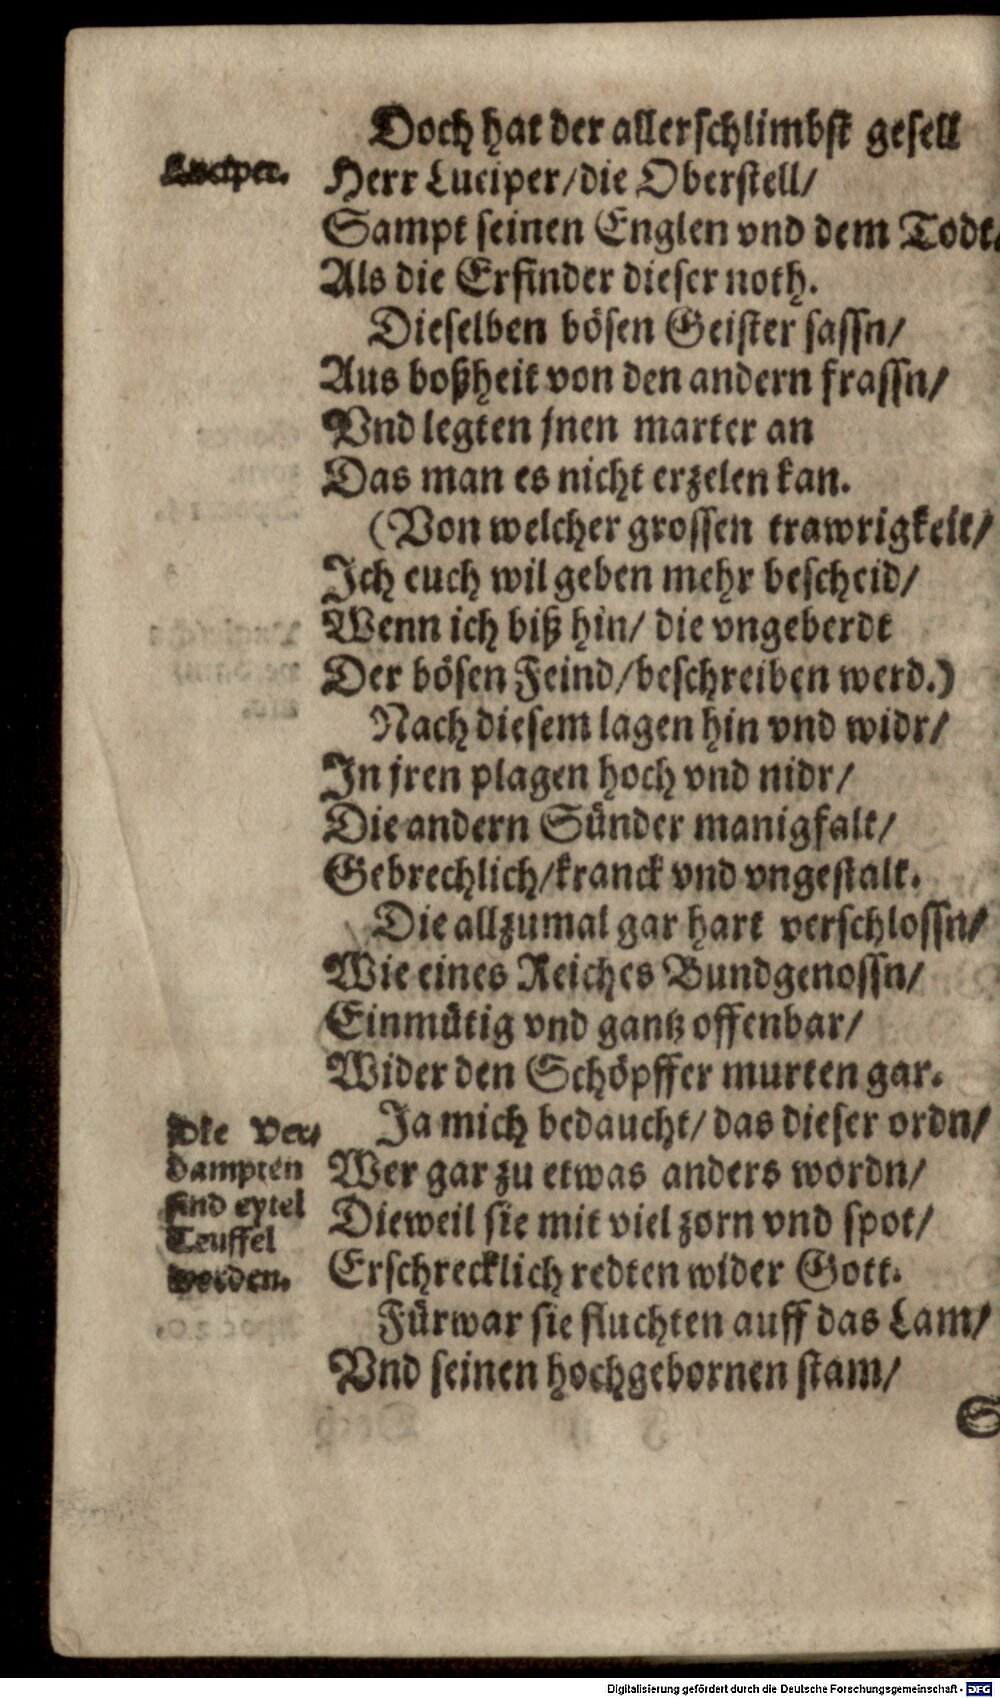 Doch hat der allerschlimbst gesell
Luciper.
Herr Luciper/die Oberstell/
Sampt seinen Englen vnd dem Todt/
Als die Erfinder dieser noth.
Dieselben bösen Geister sassn/
Aus boßheit von den andern frassn/
Vnd legten jnen marter an
Das man es nicht erzelen kan.
(Von welcher grossen trawrigkeit/
Ich euch wil geben mehr bescheid/
Wenn ich biß hin/ die vngeberdt
Der bösen Feind/beschreiben werd.)
Nach diesem lagen hin vnd widr/
In jren plagen hoch vnd nidr/
Die andern Sünder manigfalt/
Gebrechlich/kranck vnd vngestalt.
Die allzumal gar hart verschlossn/
Wie eines Reiches Bundgenossn/
Einmütig vnd gantz offenbar/
Wider den Schöpffer murten gar.
Ja mich bedaucht/ das dieser ordn/
Wer gar zu etwas anders wordn/
Dieweil sie mit viel zorn vnd spot/
Erschrecklich redten wider Gott.
Die Ver-
dampten
sind eytel
Teuffel
worden.
Fürwar sie fluchten auff das Lam/
Vnd seinen hochgebornen stam/
Digitalisierung gefördert durch die Deutsche Forschungsgemeinschaft - DFG